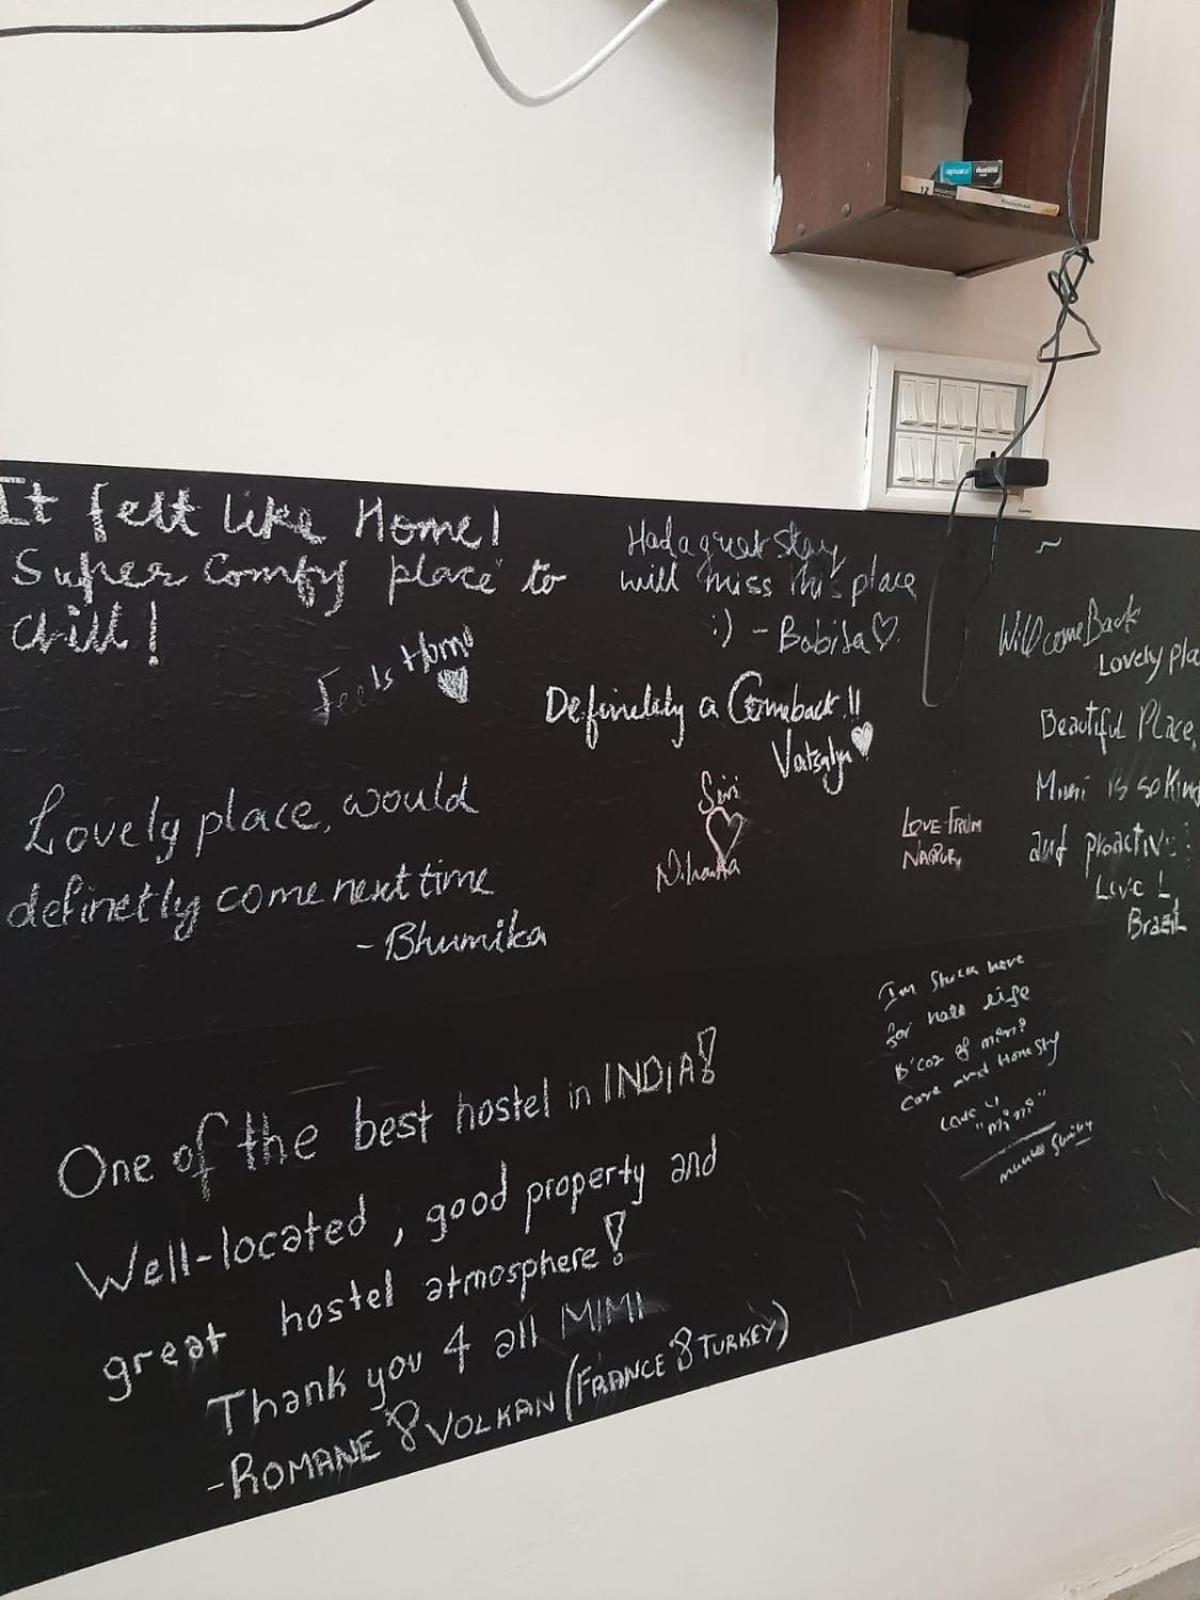 It felt like Home!
Super Comfy place to
chill!
Feels Home
Had a great stay
will miss this place
:) - Babita
Definitely a Comeback!!
Vatsalya
Will come Back
Lovely pla
Beautiful Place,
Mimi is so kind
and proactive
Brazil
Siri
Niharika
LOVE FROM
NAGPUR,
Lovely place, would
definetly come next time
- Bhumika
Im Stuck here
for half life
B'coz of mimi
Care and Honesty
"mimi"
One of the best hostel in INDIA!
Well-located, good property and
great hostel atmosphere!
Thank you 4 all MIMI
- ROMANE & VOLKAN (FRANCE & TURKEY)